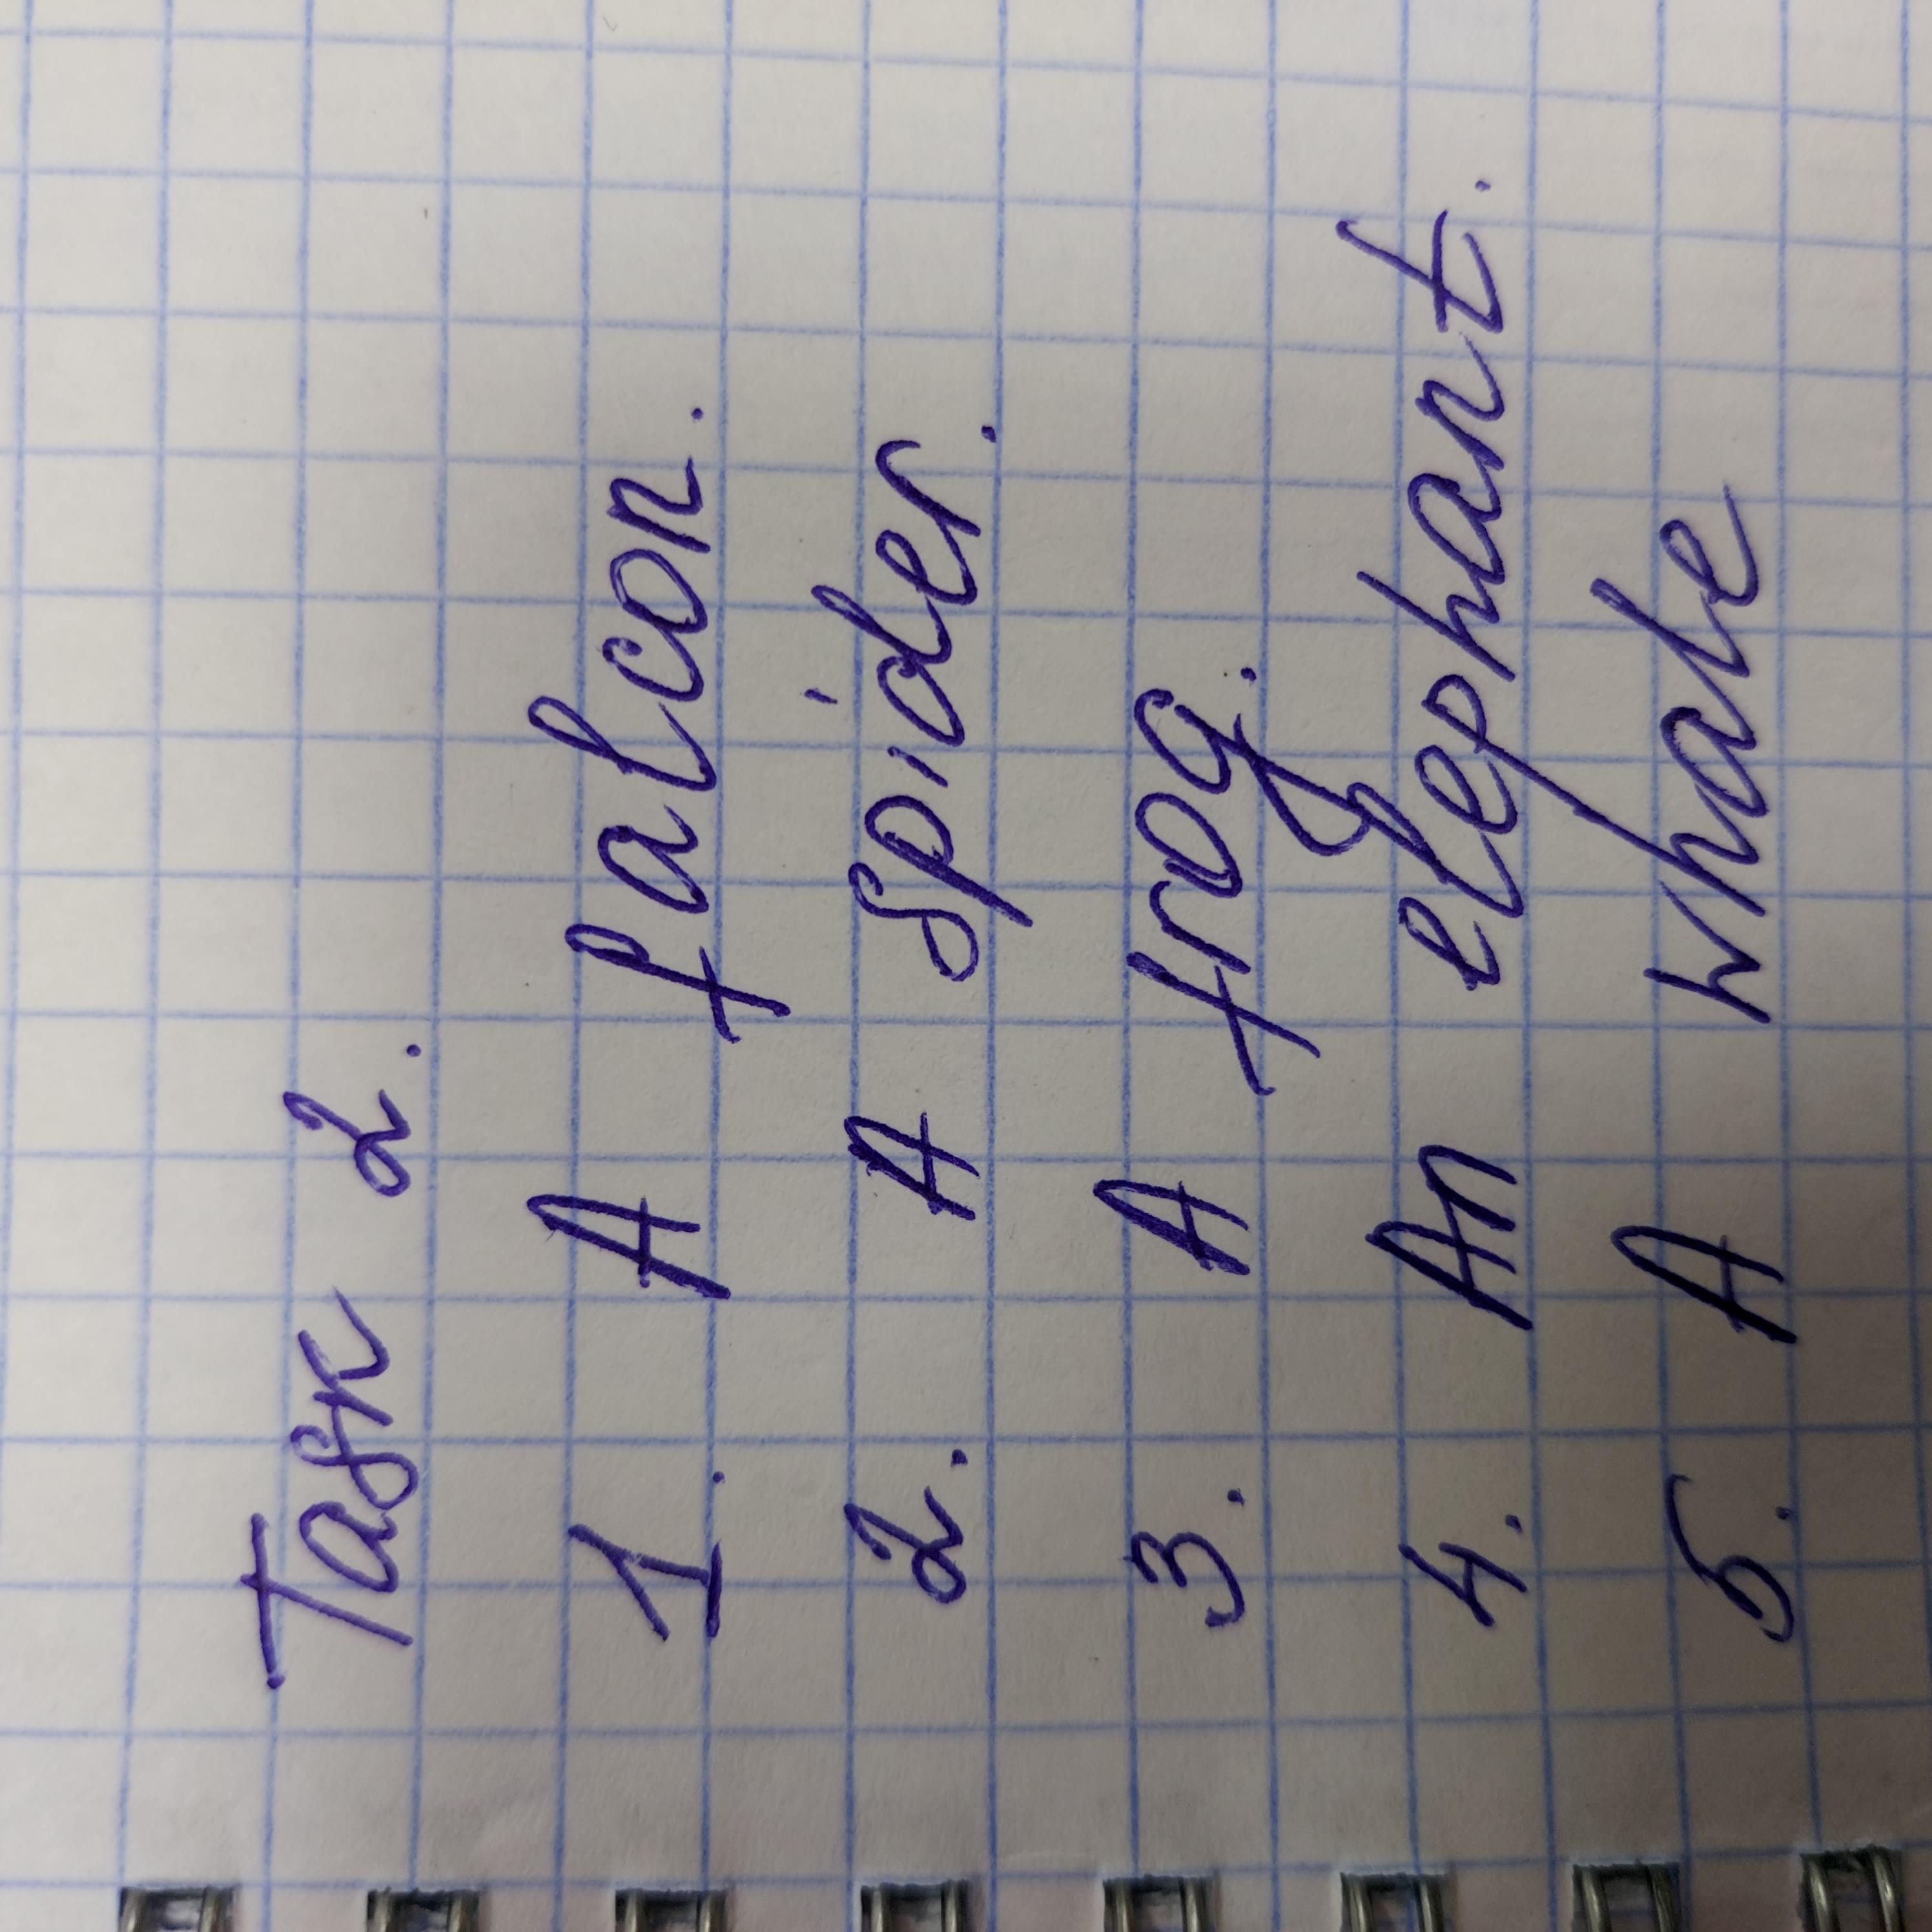 Task 2.
1. A falcon.
2. A spider.
3. A frog.
4. An elephant.
5. A whale